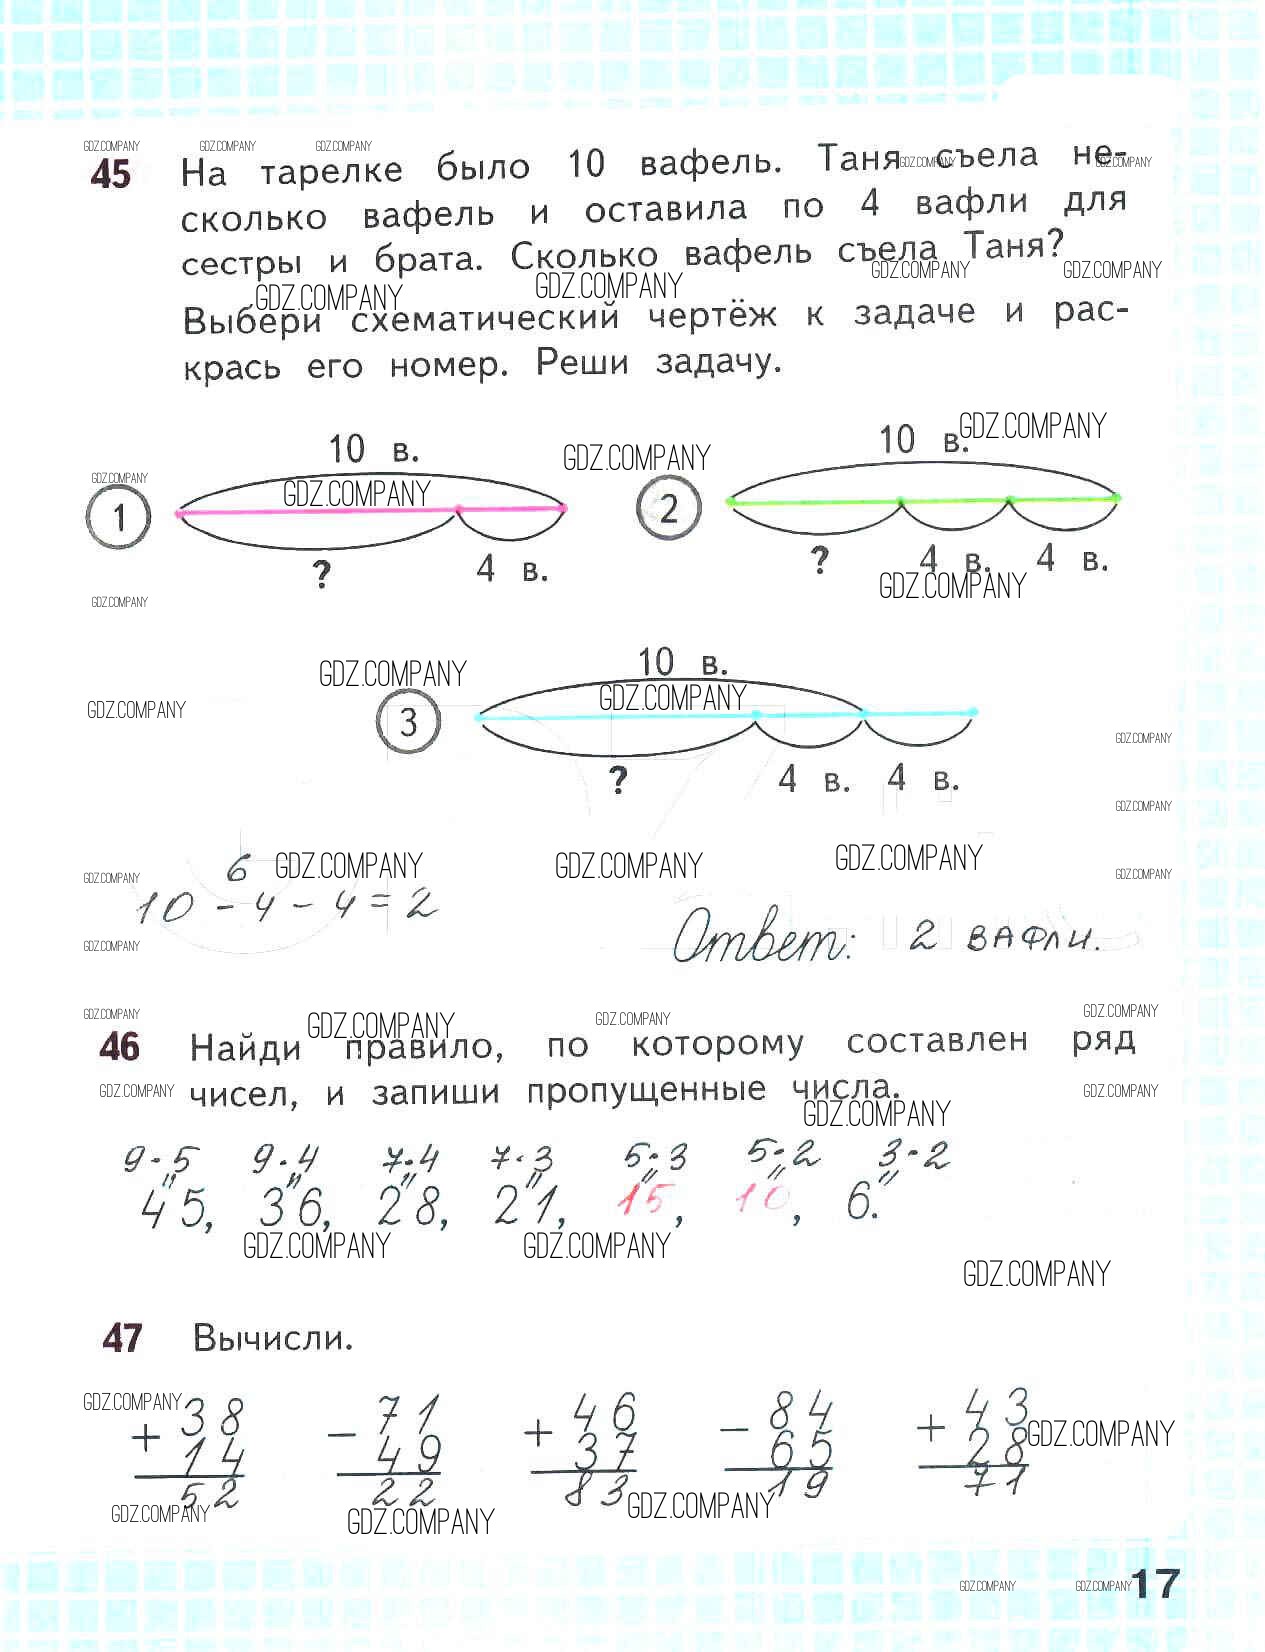 GDZ.COMPANY GDZ.COMPANY GDZ.COMPANY
45 На тарелке было 10 вафель. Таня съела не-
GDZ.COMPANY GDZ.COMPANY
сколько вафель и оставила по 4 вафли для
сестры и брата. Сколько вафель съела Таня?
GDZ.COMPANY GDZ.COMPANY GDZ.COMPANY GDZ.COMPANY
Выбери схематический чертёж к задаче и рас-
крась его номер. Реши задачу.
10 в. GDZ.COMPANY 10 в. GDZ.COMPANY
GDZ.COMPANY GDZ.COMPANY
1 2
? 4 в. ? 4 в. 4 в.
GDZ.COMPANY GDZ.COMPANY
GDZ.COMPANY 10 в.
GDZ.COMPANY GDZ.COMPANY
3
GDZ.COMPANY
? 4 в. 4 в.
GDZ.COMPANY
6 GDZ.COMPANY GDZ.COMPANY GDZ.COMPANY
GDZ.COMPANY GDZ.COMPANY
10 - 4 - 4 = 2
Ответ: 2 вафли.
GDZ.COMPANY
GDZ.COMPANY GDZ.COMPANY GDZ.COMPANY GDZ.COMPANY
46 Найди правило, по которому составлен ряд
чисел, и запиши пропущенные числа.
GDZ.COMPANY GDZ.COMPANY GDZ.COMPANY
9·5 9·4 7·4 7·3 5·3 5·2 3·2
45, 36, 28, 21, 15, 10, 6.
GDZ.COMPANY GDZ.COMPANY GDZ.COMPANY
47 Вычисли.
GDZ.COMPANY
38 71 46 84 43
+ - + - + GDZ.COMPANY
14 49 37 65 28
52 22 83 19 71
GDZ.COMPANY GDZ.COMPANY GDZ.COMPANY
GDZ.COMPANY GDZ.COMPANY 17